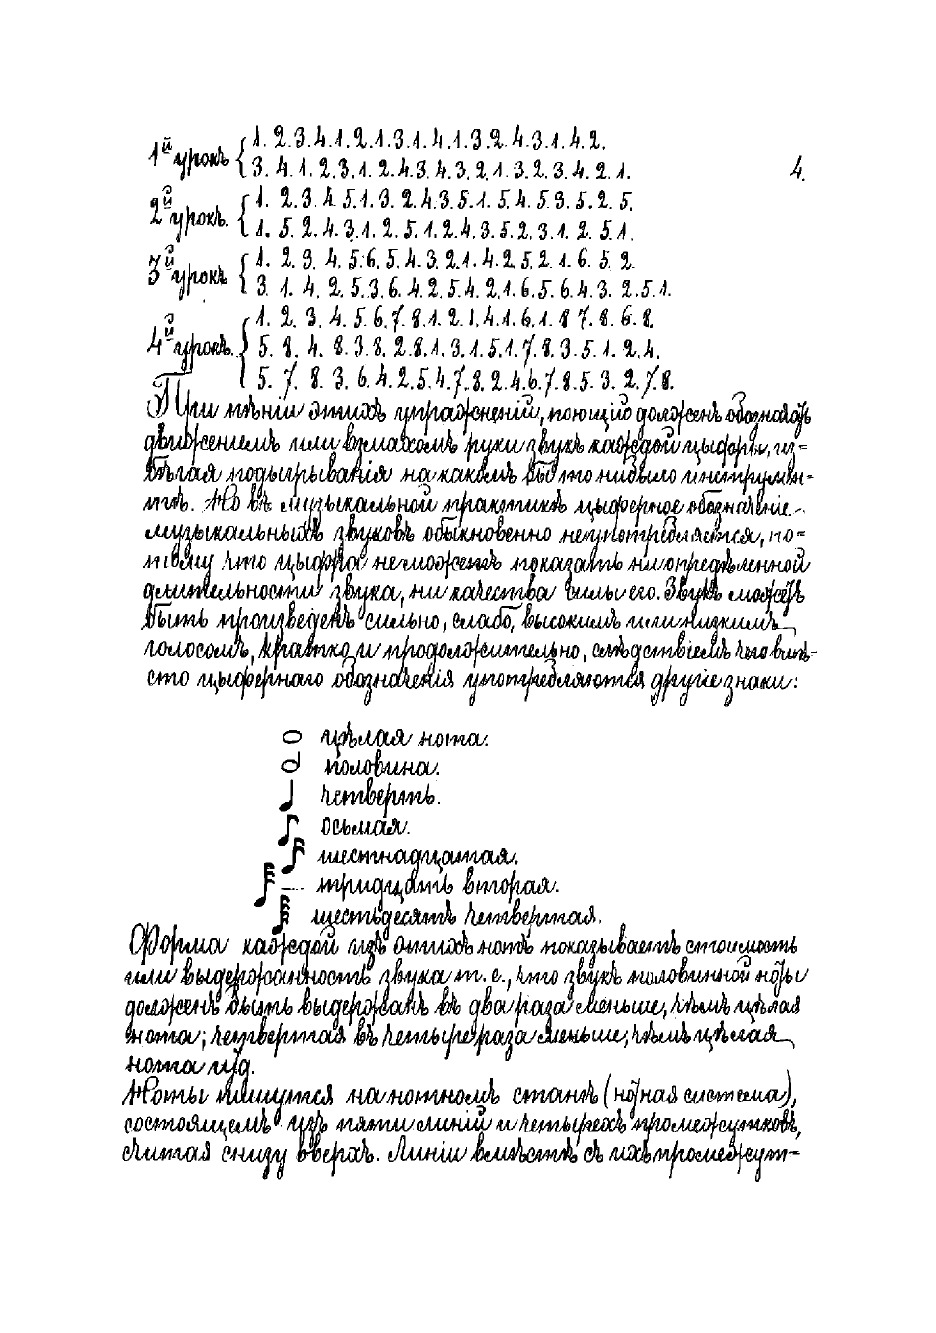 4.
1й урокъ { 1. 2. 3. 4. 1. 2. 1. 3. 1. 4. 1. 3. 2. 4. 3. 1. 4. 2.
3. 4. 1. 2. 3. 1. 2. 4. 3. 4. 3. 2. 1. 3. 2. 3. 4. 2. 1.
2й урокъ. { 1. 2. 3. 4. 5. 1. 3. 2. 4. 3. 5. 1. 5. 4. 5. 3. 5. 2. 5.
1. 5. 2. 4. 3. 1. 2. 5. 1. 2. 4. 3. 5. 2. 3. 1. 2. 5. 1.
3й урокъ { 1. 2. 3. 4. 5. 6. 5. 4. 3. 2. 1. 4. 2. 5. 2. 1. 6. 5. 2.
3. 1. 4. 2. 5. 3. 6. 4. 2. 5. 4. 2. 1. 6. 5. 6. 4. 3. 2. 5. 1.
4й урокъ. { 1. 2. 3. 4. 5. 6. 7. 8. 1. 2. 1. 4. 1. 6. 1. 8. 7. 8. 6. 8.
5. 8. 4. 8. 3. 8. 2. 8. 1. 3. 1. 5. 1. 7. 8. 3. 5. 1. 2. 4.
5. 7. 8. 3. 6. 4. 2. 5. 4. 7. 8. 2. 4. 6. 7. 8. 5. 3. 2. 7. 8.
При пѣніи этихъ упражненій, поющій долженъ обозначать
движеніемъ или взмахомъ руки звукъ каждой цыфры, из-
бѣгая подыгрыванія на какомъ бы то нибыло инструмен-
тѣ. Но въ музыкальной практикѣ цыферное обозначеніе
музыкальныхъ звуковъ обыкновенно неупотребляется, по-
тому что цыфра неможетъ показать ни опредѣленной
длительности звука, ни качества силы его. Звукъ можетъ
быть произведенъ сильно, слабо, высокимъ или низкимъ
голосомъ, кратко и продолжительно, слѣдствіемъ чего вмѣ-
сто цыфернаго обозначенія употребляются другіе знаки:
цѣлая нота.
половина.
четверть.
осьмая.
шестнадцатая.
тридцать вторая.
шестьдесятъ четвертая.
Форма каждой изъ этихъ нотъ показываетъ стоимость
или выдержанность звука т. е., что звукъ половинной ноты
долженъ быть выдержанъ въ два раза меньше, чѣмъ цѣлая
нота; четвертая въ четыре раза меньше, чѣмъ цѣлая
нота итд.
Ноты пишутся на нотномъ станѣ (нотная система),
состоящемъ изъ пяти линій и четырехъ промежутковъ,
считая снизу вверхъ. Линіи вмѣстѣ съ ихъ промежут-